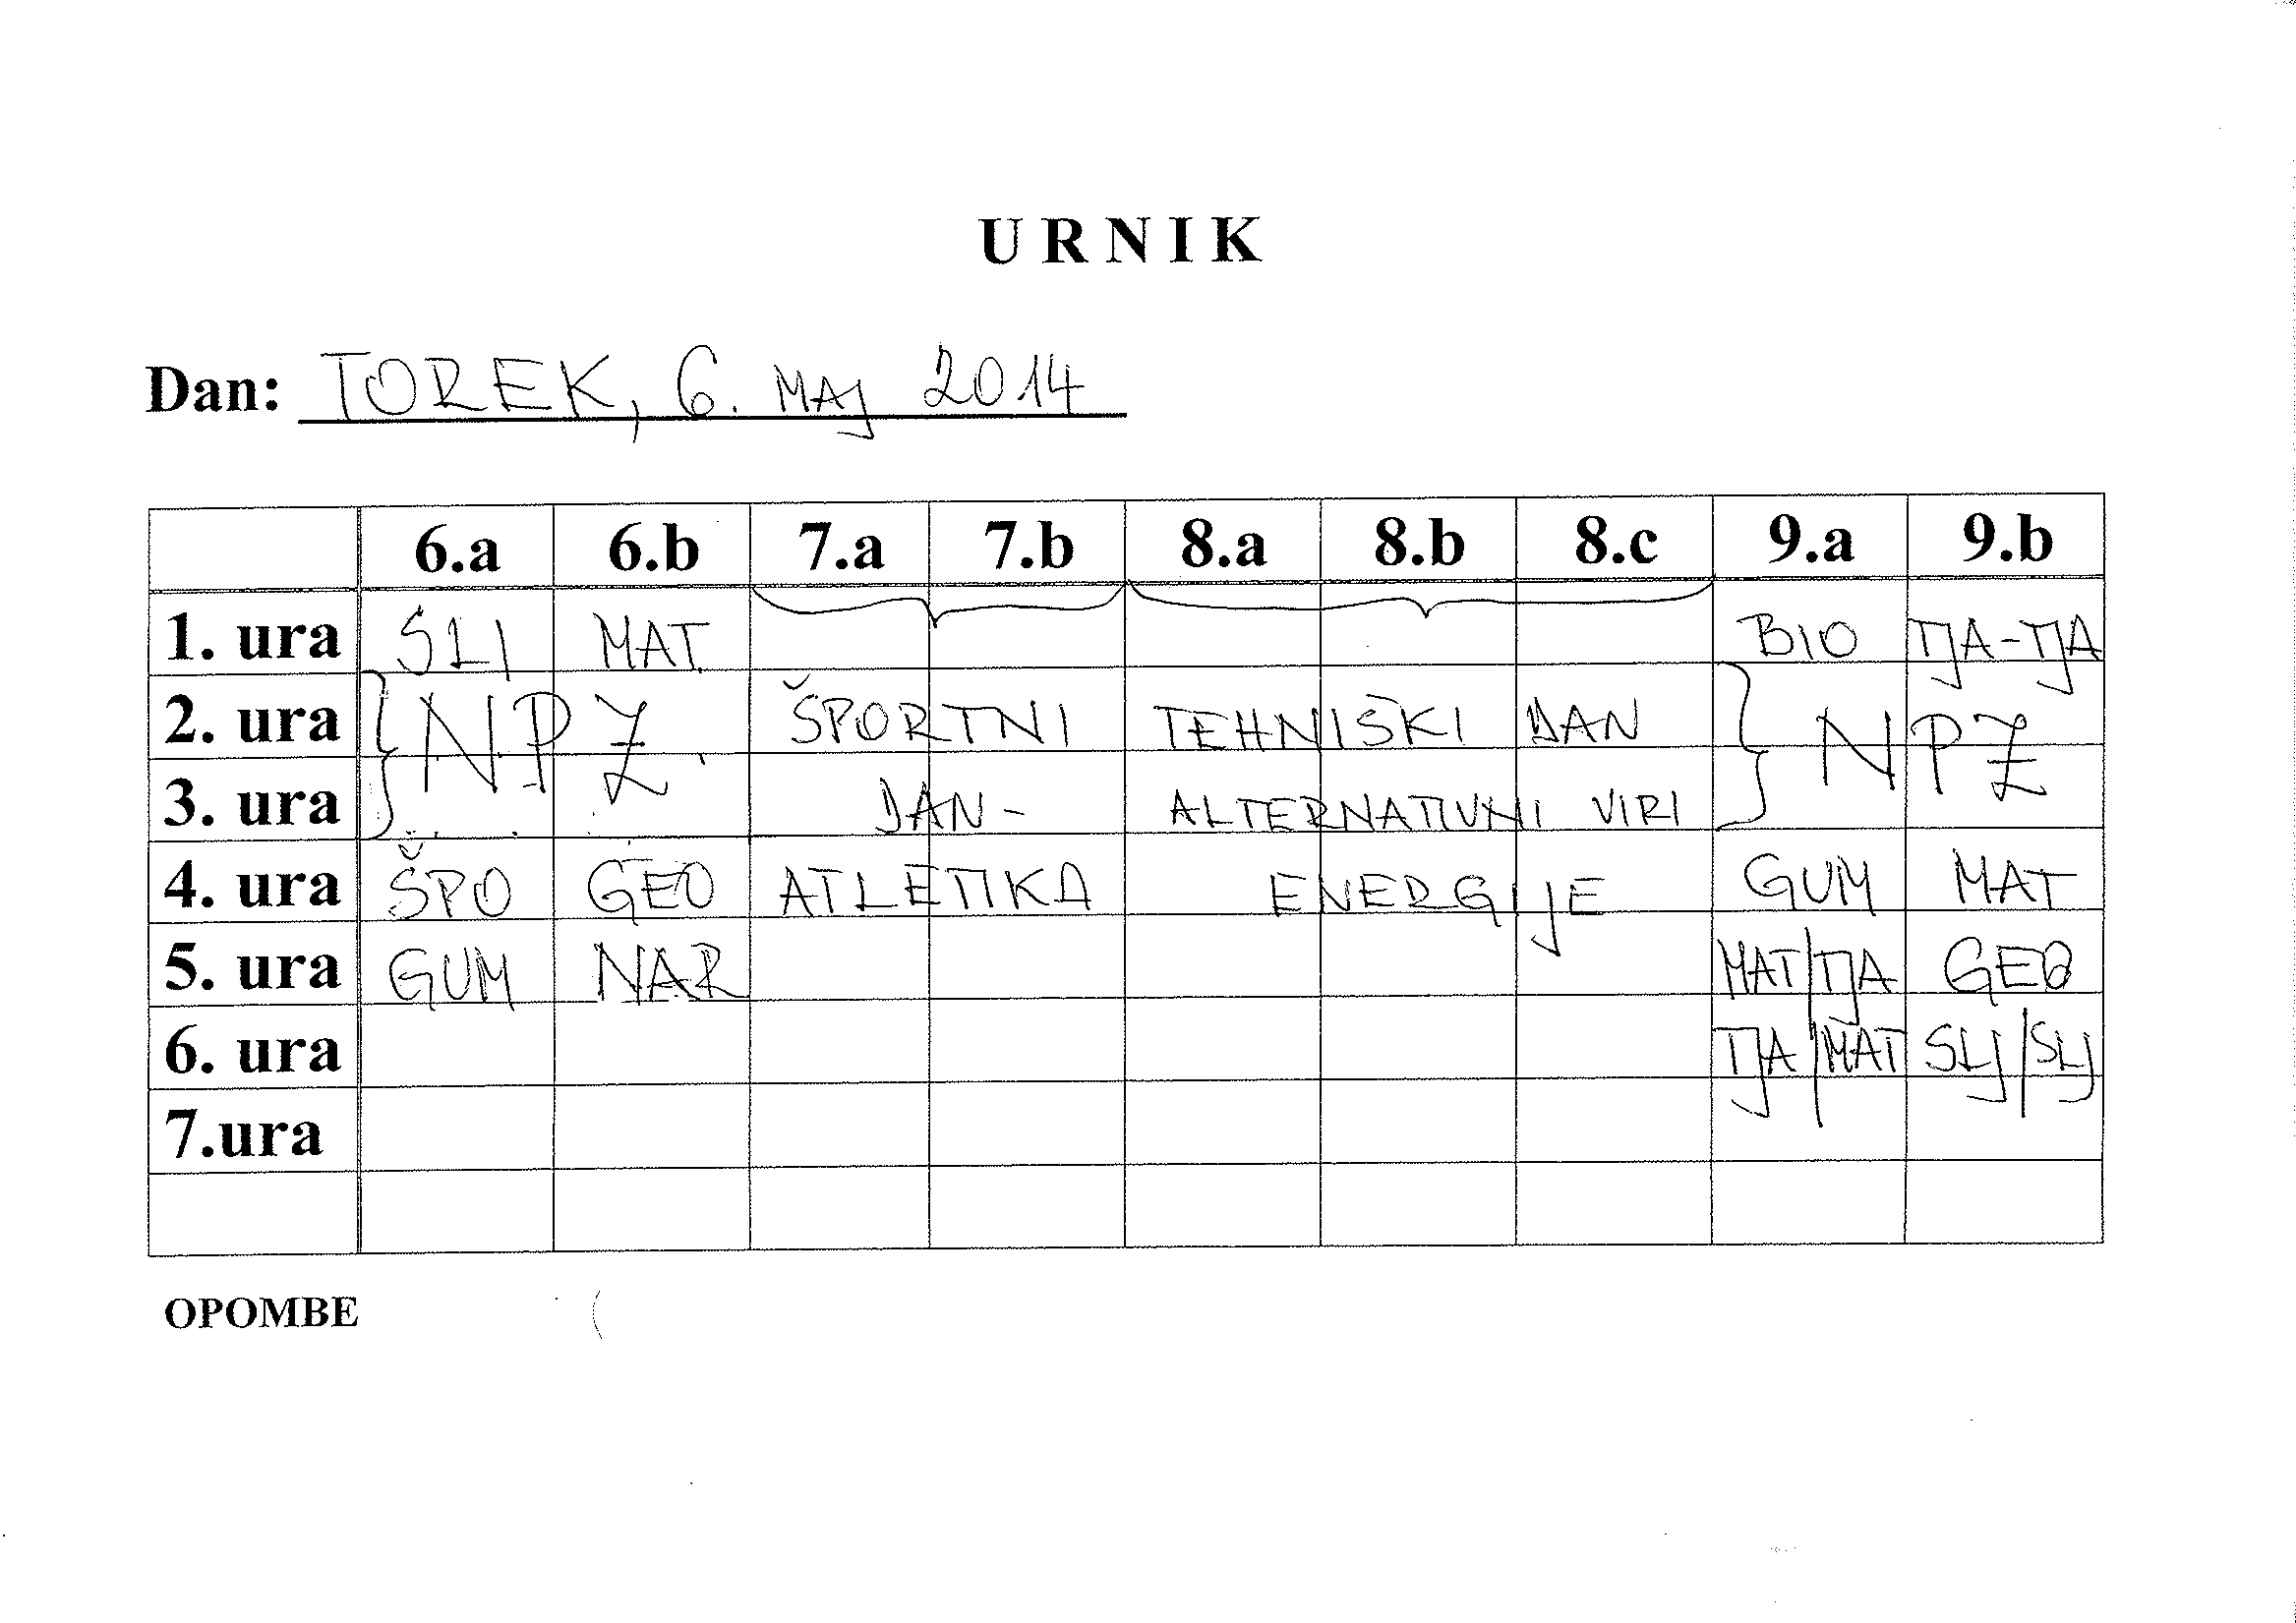 URNIK
Dan: TOREK, 6. MAJ 2014
6.a 6.b 7.a 7.b 8.a 8.b 8.c 9.a 9.b
1. ura SLJ MAT BIO TJA-TJA
2. ura NPZ ŠPORTNI TEHNIŠKI DAN NPZ
3. ura DAN- ALTERNATIVNI VIRI
4. ura ŠPO GEO ATLETIKA ENERGIJE GUM MAT
5. ura GUM NAR MAT/TJA GEO
6. ura TJA/MAT SLJ/SLJ
7.ura
OPOMBE